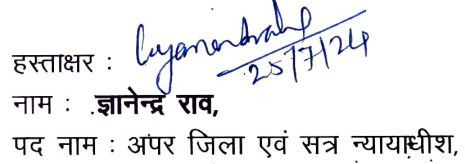 हस्ताक्षर : Gyanendra
25/7/24
नाम : ज्ञानेन्द्र राव,
पद नाम : अपर जिला एवं सत्र न्यायाधीश,